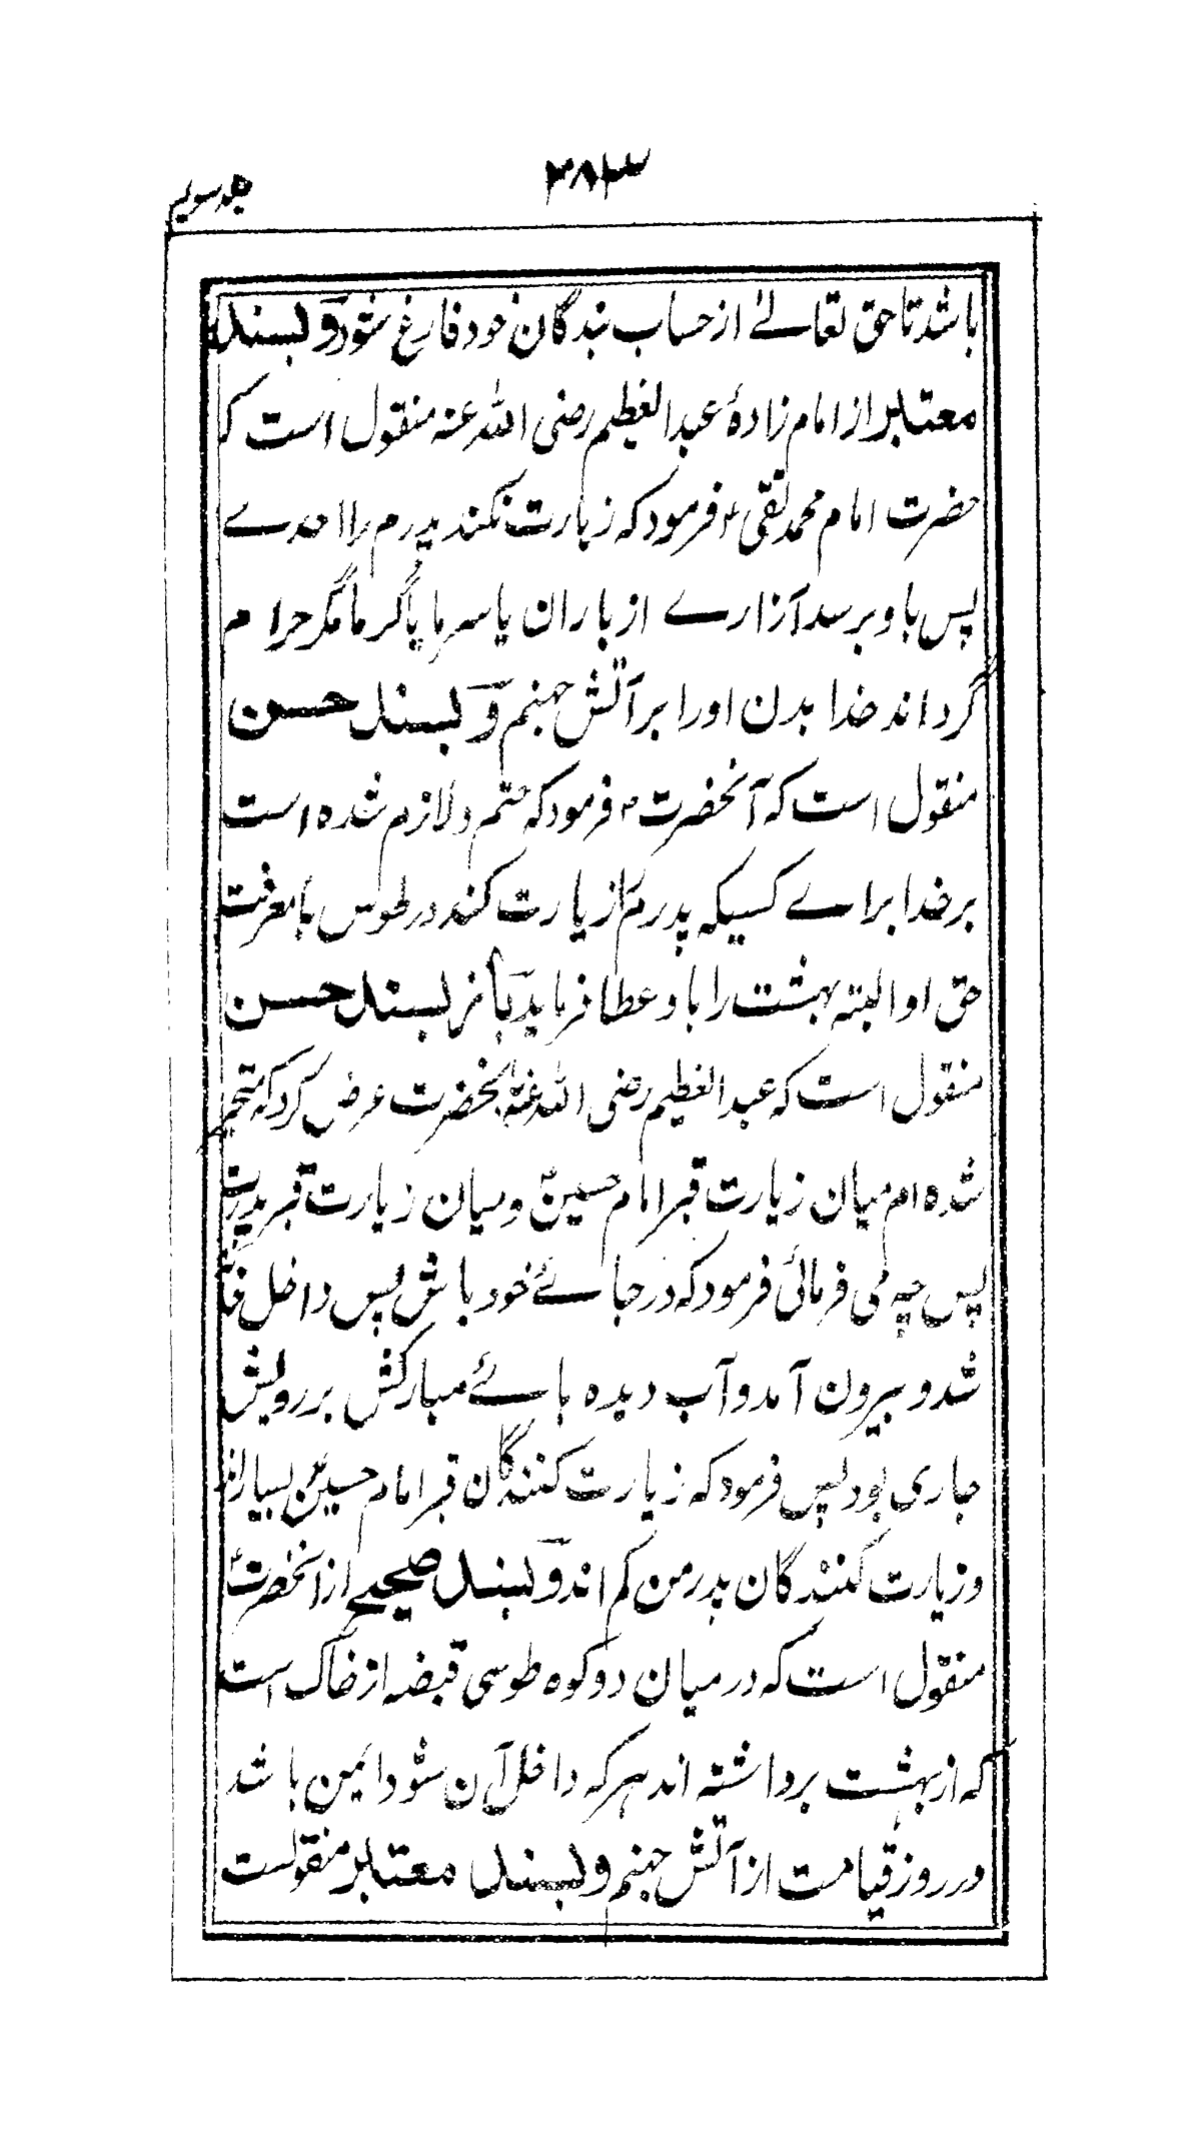 ۳۸۳
جلد سویم
باشد تا حق تعالےٰ از حساب بندگان خود فارغ شود و بسند
معتبر از امام زادۂ عبد العظیم رضی اللہ عنہ منقول است کہ
حضرت امام محمد تقی ع فرمود کہ زیارت نکند پدرم را احدے
پس باو برسد آزارے از باران یا سرما یا گرما مگر حرام
گرداند خدا بدن اورا بر آتش جہنم و بسند حسن
منقول است کہ آنحضرت ع فرمود کہ حتم و لازم شدہ است
بر خدا براے کسیکہ پدرم را زیارت کند در طوس با معرفت
حق او البتہ بہشت را باو عطا فرماید بانز بسند حسن
منقول است کہ عبد العظیم رضی اللہ عنہ بآنحضرت عرض کرد کہ متحیر
شدہ ام میان زیارت قبر امام حسین ع و میان زیارت قبر پدرت
پس چہ می فرمائی فرمود کہ در جائے خود باش پس داخل خانہ
شد و بیرون آمد و آب دیدہ ہائے مبارکش بر رویش
جاری بود پس فرمود کہ زیارت کنندگان قبر امام حسین ع بسیارند
و زیارت کنندگان پدر من کم اند و بسند صحیح از آنحضرت ع
منقول است کہ درمیان دو کوہ طوسی قبضہ از خاک است
کہ از بہشت برداشتہ اند ہر کہ داخل آن شود ایمن باشد
در روز قیامت از آتش جہنم و بسند معتبر منقولست